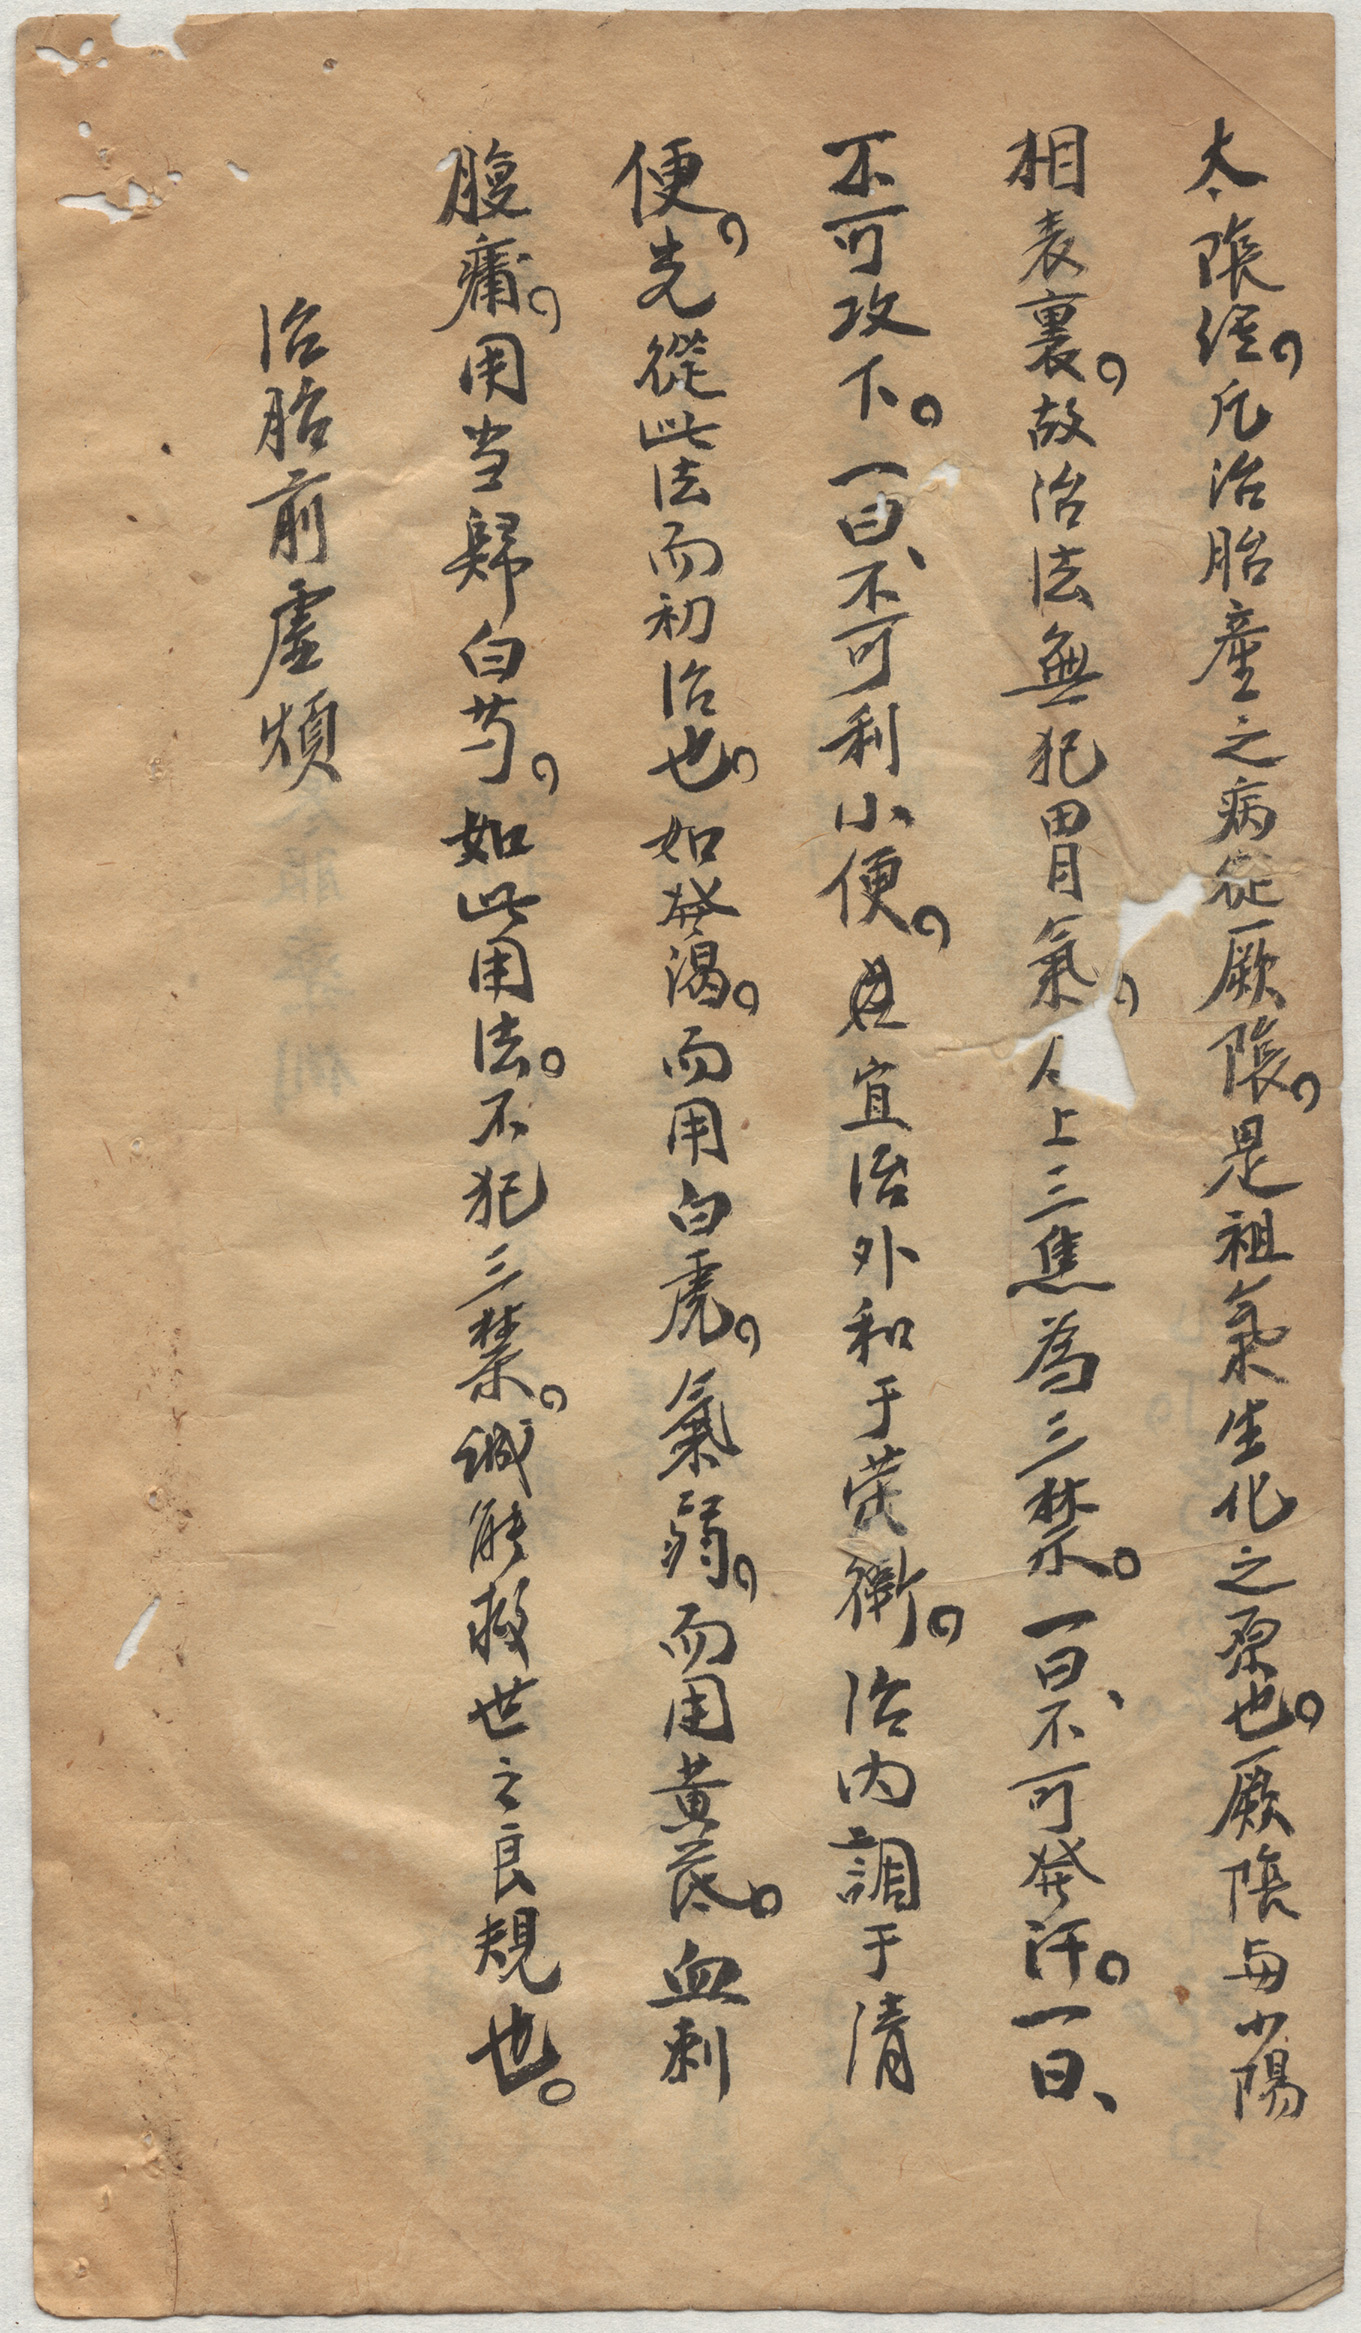 太陰經。凡治胎產之病從厥陰。是祖氣生化之原也。厥陰与少陽
相表裏。故治法無犯胃氣。人上三焦為三禁。一曰、不可發汗。一曰、
不可攻下。一曰、不可利小便。宜治外和于荣衛。治内調于清
便。先從此法而初治也。如發渴。而用白虎。氣弱。而用黄芪。血刺
腹痛。用当歸白芍。如此用法。不犯三禁。誠能救世之良規也。
治胎前虛煩